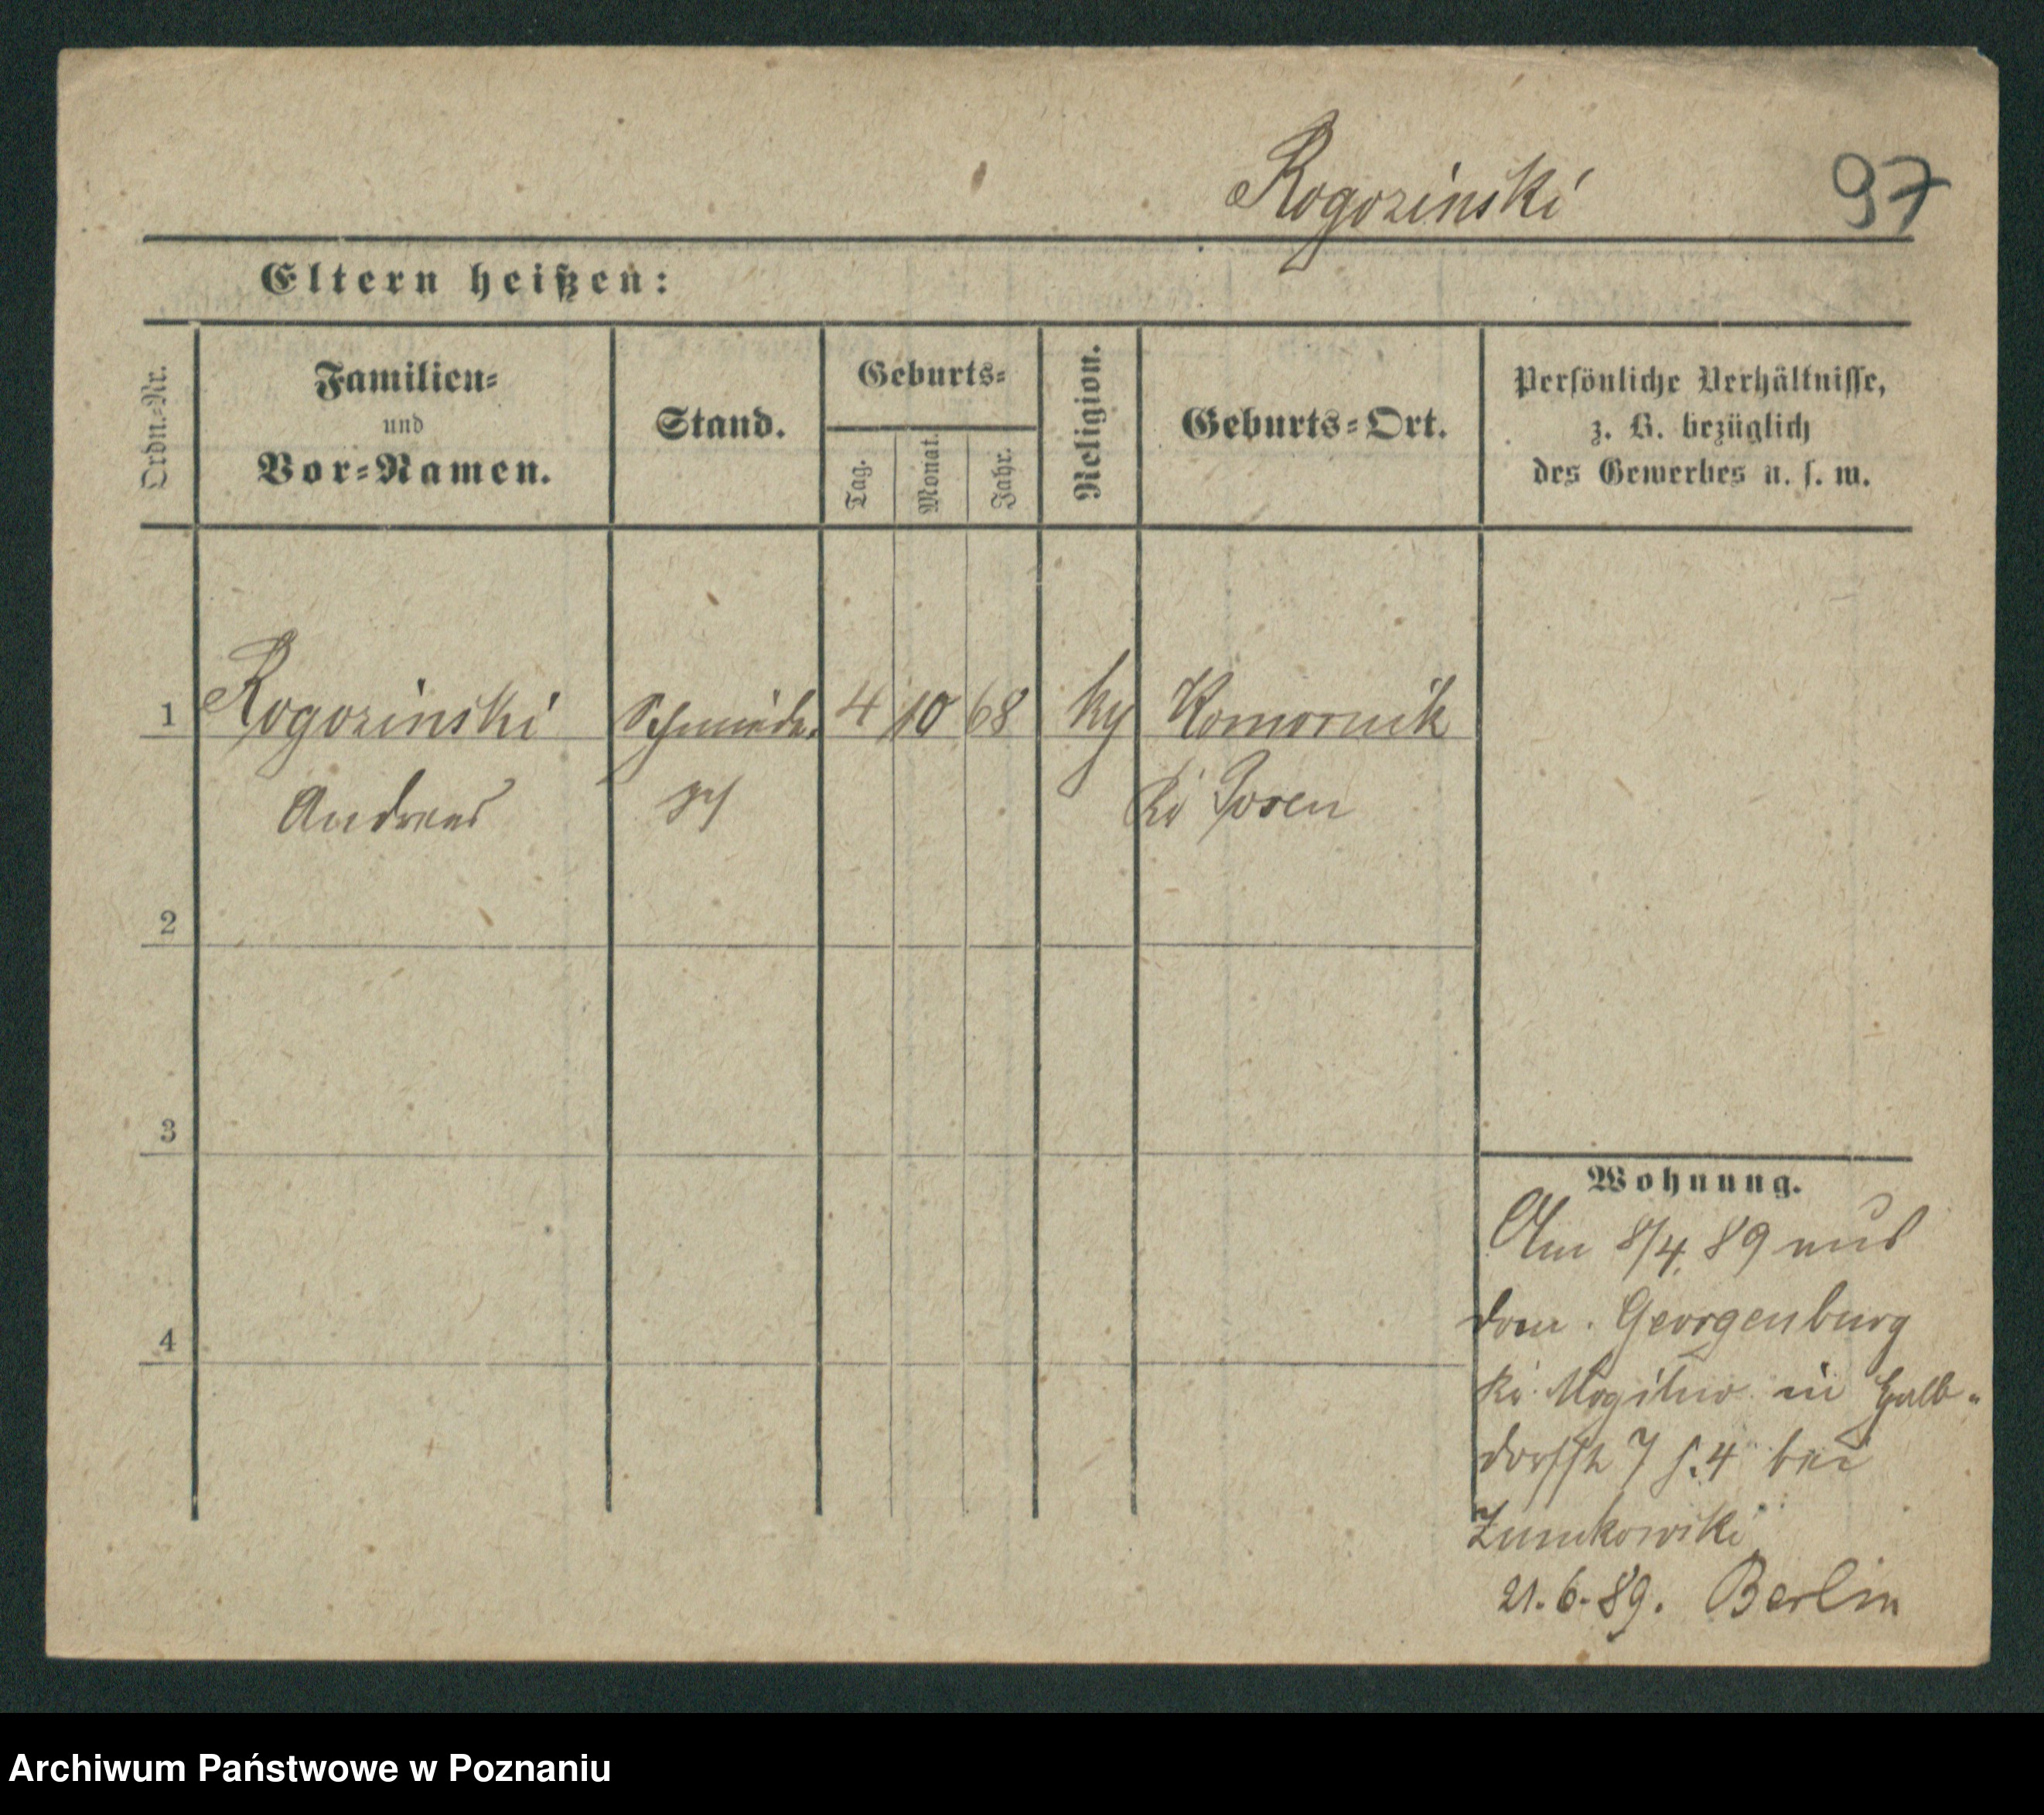 Rogozinski
97
Eltern heißen:
Ordn.-Nr.
Familien-
und
Vor-Namen.
Stand.
Geburts-
Tag.
Monat.
Jahr.
Religion.
Geburts-Ort.
Persönliche Verhältnisse,
z. B. bezüglich
des Gewerbes u. s. w.
1 Rogozinski Schmiede- 4 10 68 Komornik
Andreas Posen
2
3
4
Wohnung.
Am 8/4 89 aus
dom. Georgenburg
Kr. Mogilno in Halb-
dorfstr 7 bei
21.6.89. Berlin
Archiwum Państwowe w Poznaniu